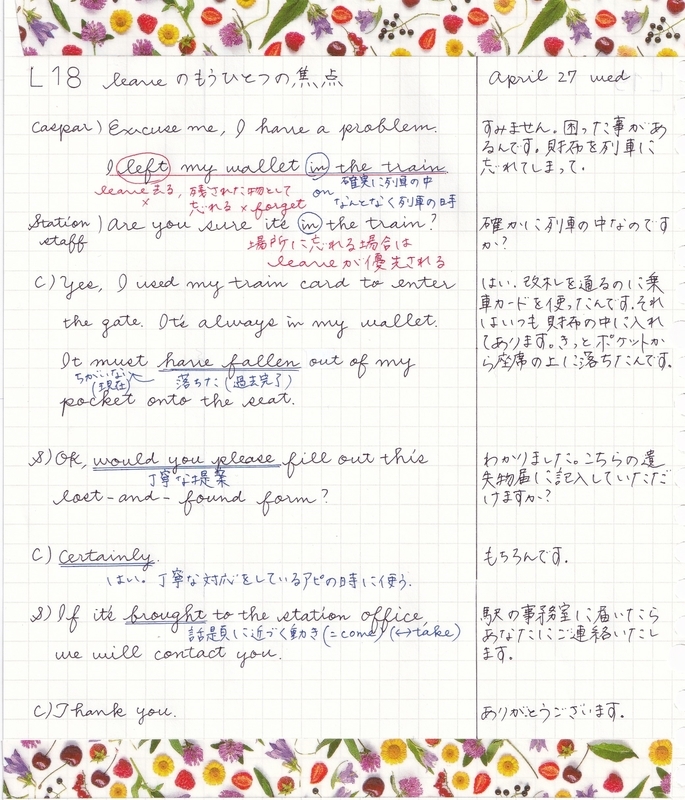 L18 leave のもうひとつの焦点
April 27 wed
Caspar) Excuse me, I have a problem.
I left my wallet in the train
leave 去る, 残された物として
× 忘れる × forget
on 確実に列車の中
なんとなく列車の時
Station staff) Are you sure it's in the train?
場所に忘れる場合は
leaveが優先される
C) Yes, I used my train card to enter
the gate. It's always in my wallet.
It must have fallen out of my
ちがいない
(現在)
落ちた(過去完了)
pocket onto the seat.
S) OK, would you please fill out this
丁寧な提案
lost-and-found form?
C) Certainly.
はい。丁寧な対応をしているアピの時に使う.
S) If it's brought to the station office,
話題に近づく動き(=come)(↔take)
we will contact you.
C) Thank you.
すみません。困った事があ
るんです。財布を列車に
忘れてしまって.
確かに列車の中なのです
か?
はい. 改札を通るのに乗
車カードを使ったんです.それ
はいつも財布の中に入れ
てあります。きっとポケットか
ら座席の上に落ちたんです.
わかりました。こちらの遺
失物届に記入していただ
けますか?
もちろんです.
駅の事務室に届いたら
あなたにご連絡いたし
ます.
ありがとうございます.